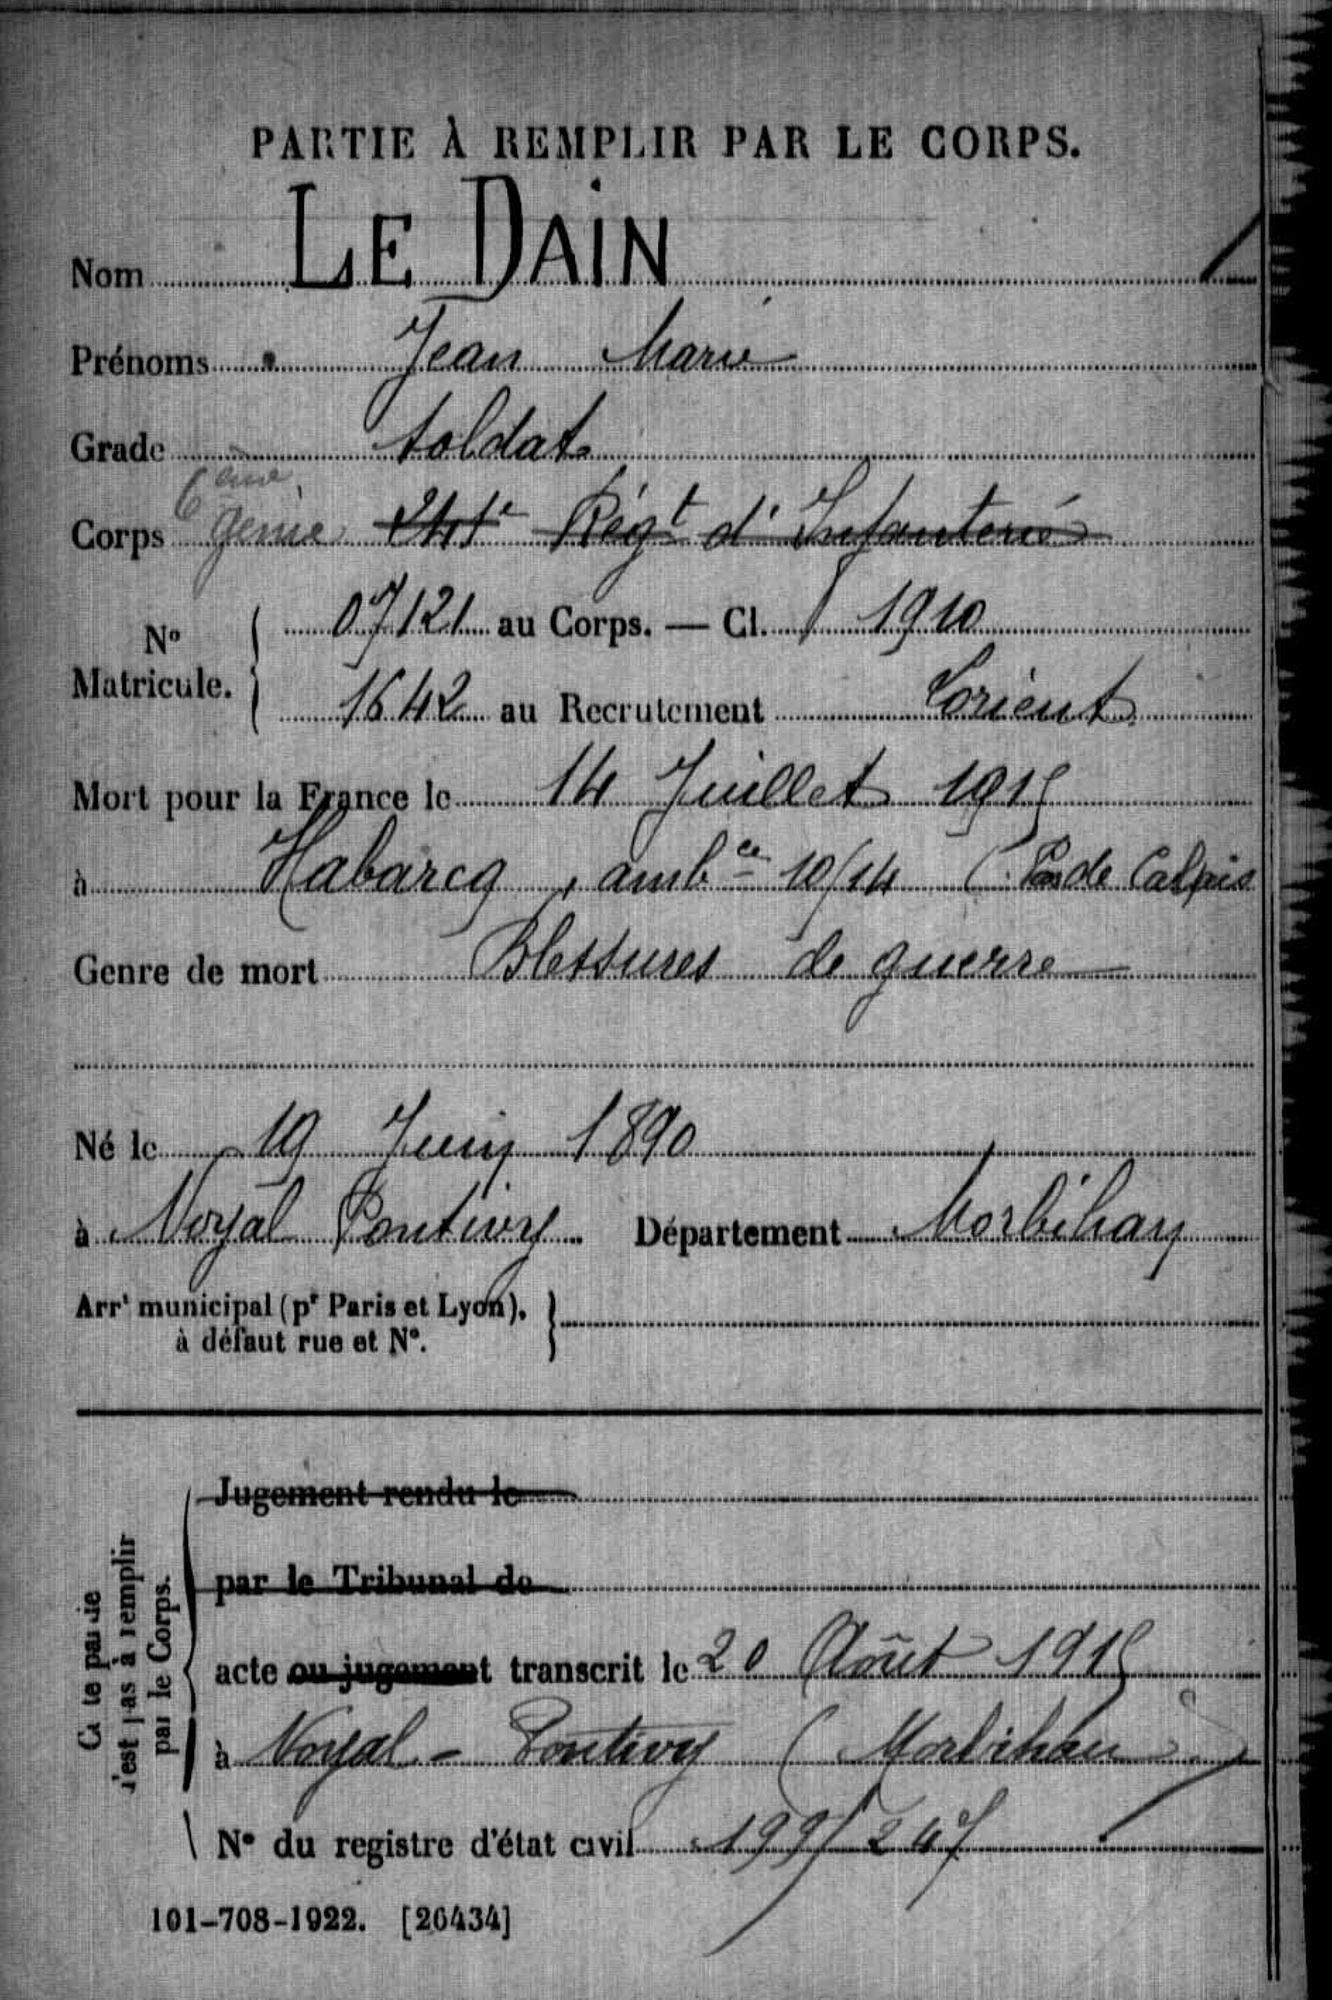 PARTIE À REMPLIR PAR LE CORPS.
Nom LE DAIN
Prénoms Jean Marie
Grade Soldat
6ème
Corps Génie 241e Régt d'Infanterie
No Matricule. 07121 au Corps. — Cl. 1910
1642 au Recrutement Lorient
Mort pour la France le 14 Juillet 1915
à Habarcq, ambce 10/14 (Pas de Calais
Genre de mort Blessures de guerre
Né le 19 Juin 1890
à Noyal Pontivy Département Morbihan
Arrt municipal (pr Paris et Lyon),
à défaut rue et No.
Cette partie
n'est pas à remplir
par le Corps.
Jugement rendu le
par le Tribunal de
acte ou jugement transcrit le 20 Août 1915
à Noyal-Pontivy (Morbihan)
No du registre d'état civil 199/247
101-708-1922. [26434]